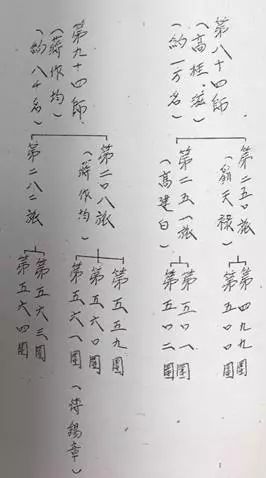 第八十四師
(高桂滋)
(約一万名)
第二五〇旅
第四九九團
第五〇〇團
第二五一旅
(高建白)
第五〇一團
第五〇二團
第九十四師
(蔣作均)
(約八千名)
第二〇八旅
(蔣作均)
第五五九團
第五六〇團
第五六一團
第二八二旅
第五六三團
第五六四團